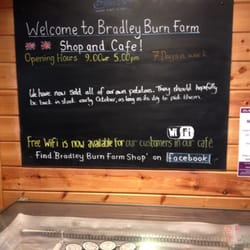 Welcome to Bradley Burn Farm
Shop and Cafe!
Opening Hours 9.00am 5.00pm 7 Days a week
We have now sold all of our own potatoes. They should hopefully
be back in stock early October, as long as its dry to pick them.
Wi Fi
Free WiFi is now available for our customers in our café
Find 'Bradley Burn Farm Shop' on Facebook!